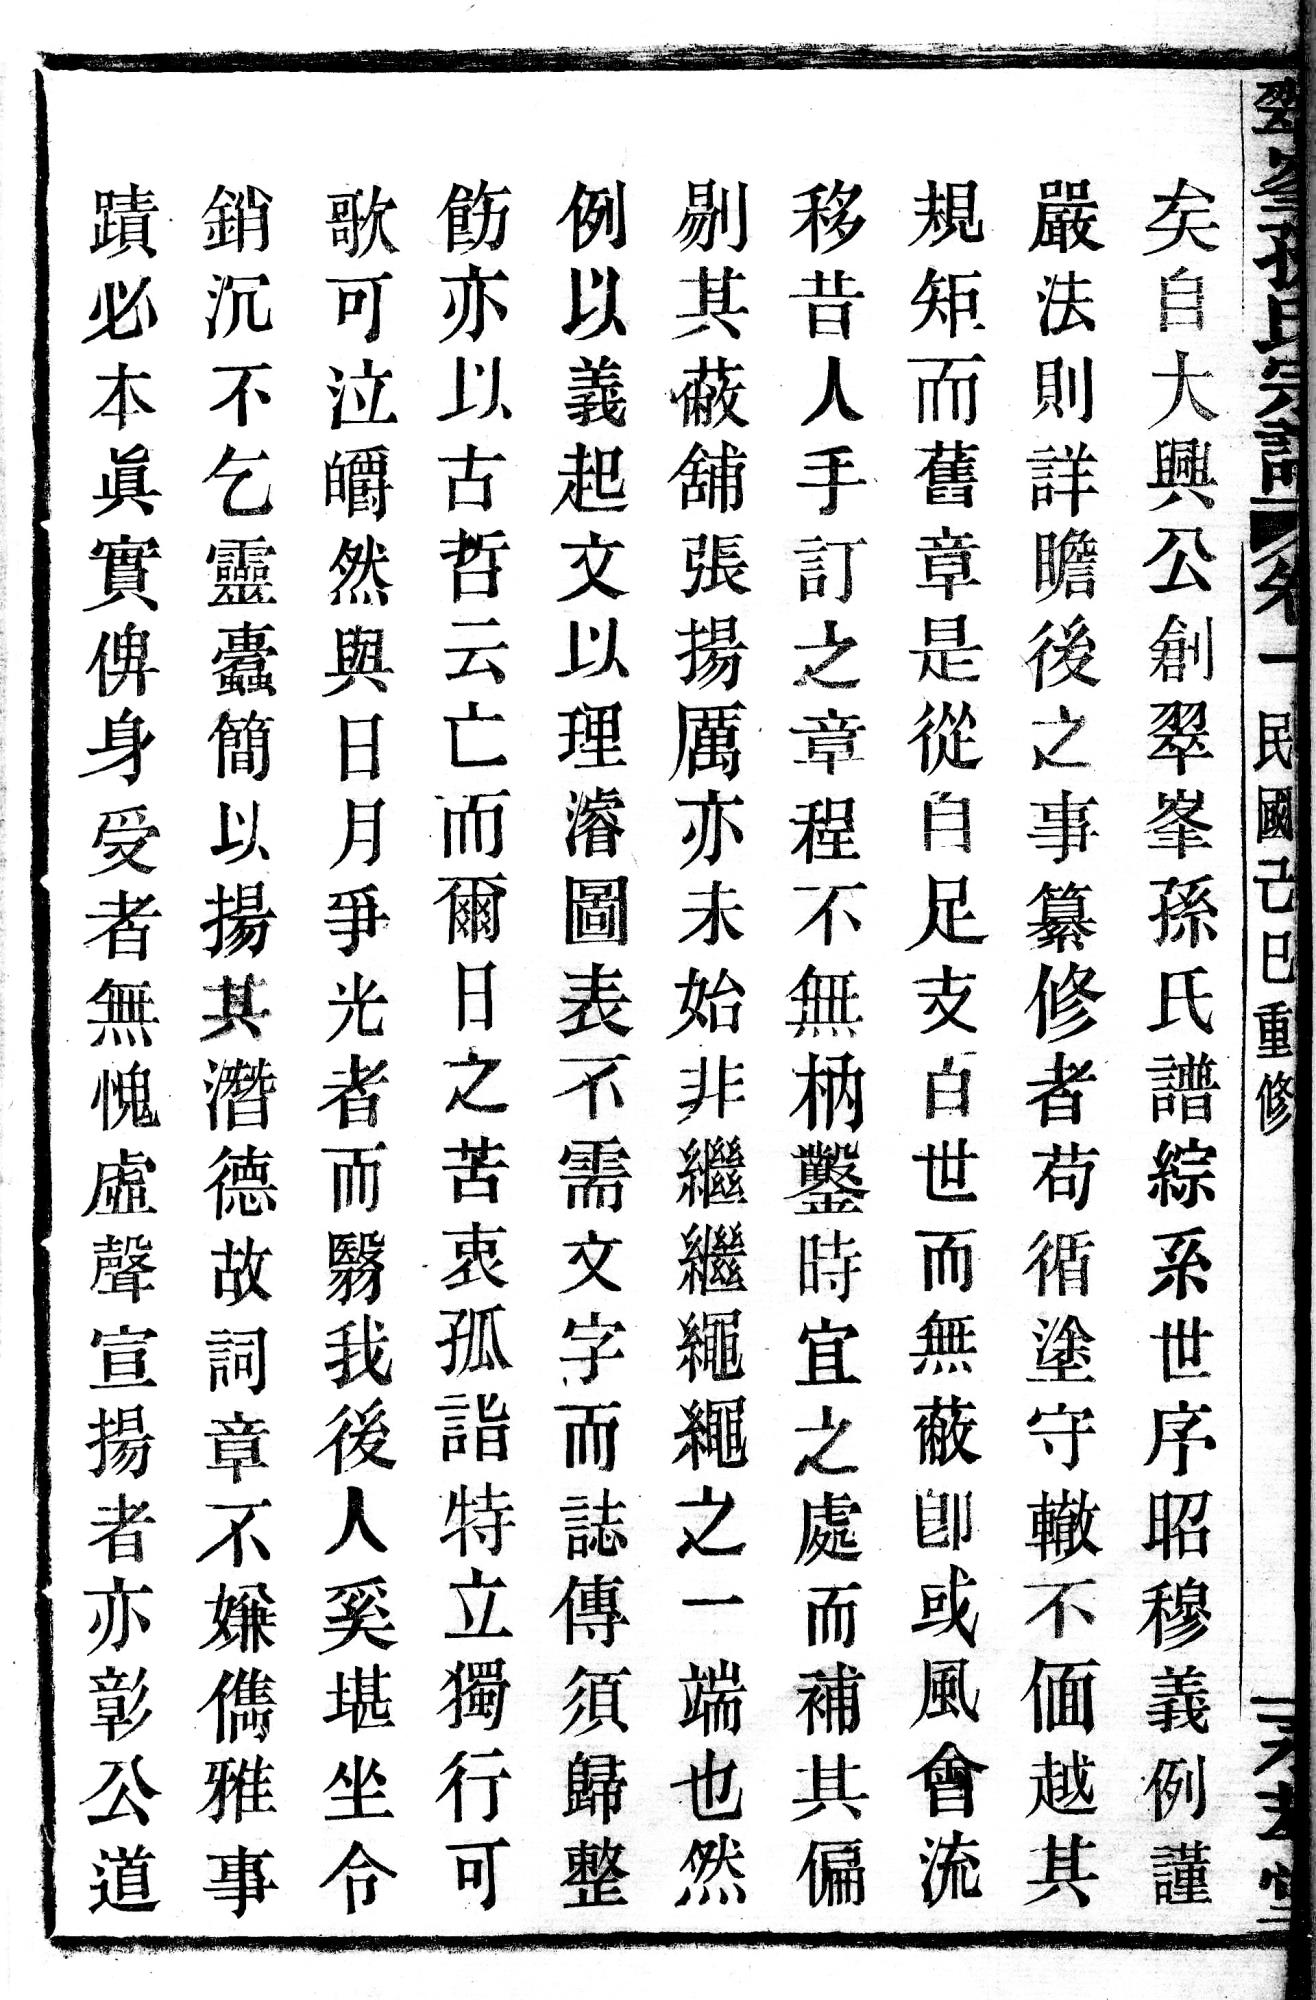 翠峯孫氏宗譜 卷一 民國己巳重修
矣自大興公創翠峯孫氏譜綜系世序昭穆義例謹
嚴法則詳瞻後之事纂修者苟循塗守轍不偭越其
規矩而舊章是從自足支百世而無蔽卽或風會流
移昔人手訂之章程不無枘鑿時宜之處而補其偏
剔其蔽舖張揚厲亦未始非繼繼繩繩之一端也然
例以義起文以理濬圖表不需文字而誌傳須歸整
飭亦以古哲云亡而爾日之苦衷孤詣特立獨行可
歌可泣皭然與日月爭光者而翳我後人奚堪坐令
銷沉不乞靈蠹簡以揚其潛德故詞章不嫌儁雅事
蹟必本眞實俾身受者無愧虛聲宣揚者亦彰公道